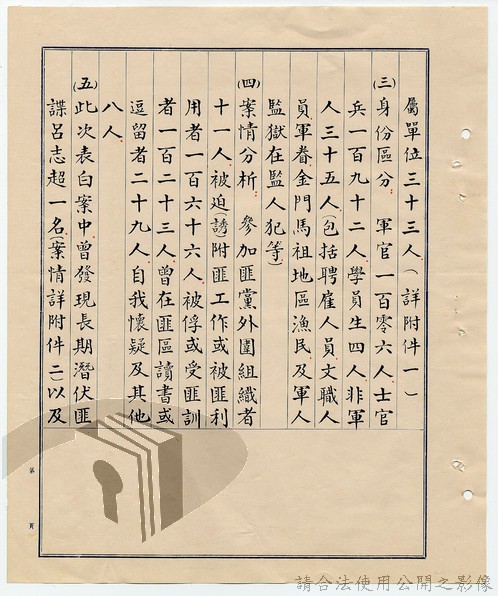 屬單位三十三人(詳附件一)
(三)身份區分 軍官一百零六人士官
兵一百九十二人學員生四人非軍
人三十五人(包括聘雇人員文職人
員軍眷金門馬祖地區漁民及軍人
監獄在監人犯等)
(四)案情分析 參加匪黨外圍組織者
十一人被迫(誘)附匪工作或被匪利
用者一百六十六人被俘或受匪訓
者一百二十三人曾在匪區讀書或
逗留者二十九人自我懷疑及其他
八人
(五)此次表白案中曾發現長期潛伏匪
諜呂志超一名(案情詳附件二)以及
第 頁
請合法使用公開之影像